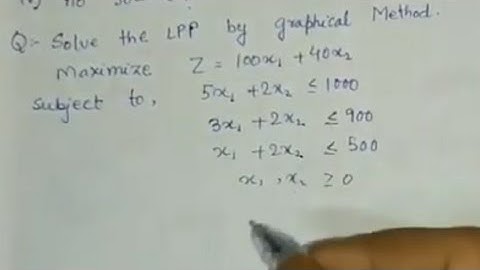 Q:- Solve the LPP by graphical Method.
Maximize Z = 100x₁ + 40x₂
subject to, 5x₁ + 2x₂ ≤ 1000
3x₁ + 2x₂ ≤ 900
x₁ + 2x₂ ≤ 500
x₁, x₂ ≥ 0